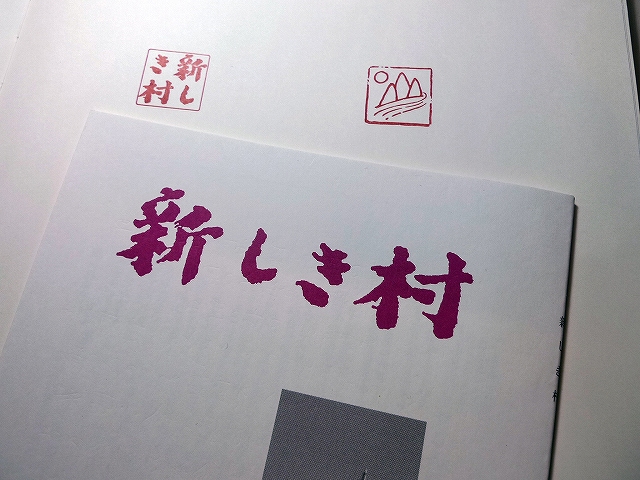 新し
き村
新しき村